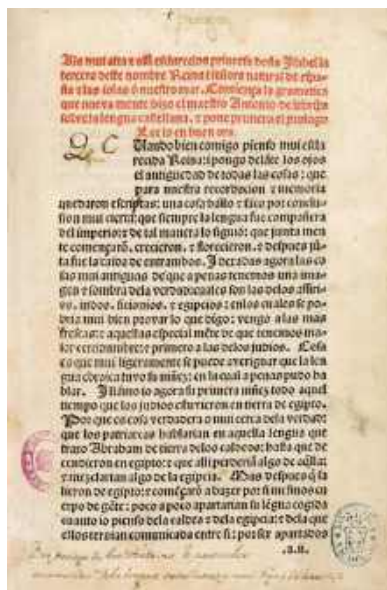 Ala mui alta τ assi esclarecida princesa doña Isabel la
tercera deste nombre Reina i señora natural de espa
ña τ las islas d nuestro mar. Comiença la gramatica
que nueva mente hizo el maestro Antonio de lebrixa
sobre la lengua castellana. τ pone primero el prologo
Lee lo en buen ora.
C Uando bien comigo pienso mui escla
recida Reina: i pongo delãte los ojos
el antiguedad de todas las cosas: que
para nuestra recordacion τ memoria
quedaron escriptas: una cosa hallo τ saco por conclu
sion mui cierta: que siempre la lengua fue compañera
del imperio: τ de tal manera lo siguió: que junta men
te començarõ. crecieron. τ florecieron. τ despues jũ
ta fue la caida de entrambos. I dexadas agora las co
sas mui antiguas de que a penas tenemos una ima
gen τ sombra dela verdad: cuales son las delos assiri
os. indos. sicionios. τ egipcios: enlos cuales se po
dria mui bien provar lo que digo: vengo a las mas
frescas: τ aquellas especial mẽte de que tenemos ma
ior certidumbre: τ primero a las delos judios. Cosa
es que mui ligera mente se puede averiguar que la len
gua ebraica tuvo su niñez: en la cual a penas pudo ha
blar. I llamo io agora su primera niñez todo aquel
tiempo que los judios estuvieron en tierra de egipto.
Por que es cosa verdadera o mui cerca dela verdad:
que los patriarcas hablarian en aquella lengua que
traxo Abraham de tierra delos caldeos: hasta que de
cendieron en egipto: τ que alli perderiã algo de aq̃lla:
τ mezclarian algo de la egipcia. Mas despues q̃ sa
lieron de egipto: τ començarõ a hazer por si mesmos cu
erpo de gẽte: poco a poco apartarian su lẽgua cogida
cuanto io pienso dela caldea τ dela egipcia: τ dela que
ellos ternian comunicada entre si: por ser apartados
.a.ii.